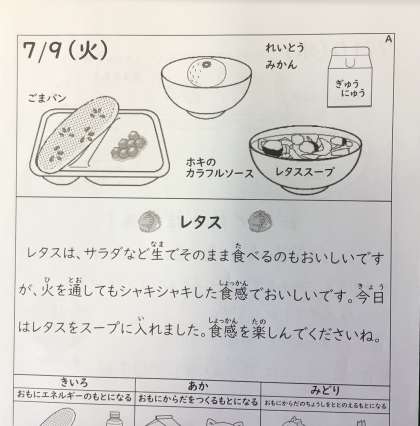 A
7/9(火)
れいとう
みかん
ぎゅう
にゅう
ごまパン
ホキの
カラフルソース
レタススープ
レタス
レタスは、サラダなど生でそのまま食べるのもおいしいです
が、火を通してもシャキシャキした食感でおいしいです。今日
はレタスをスープに入れました。食感を楽しんでくださいね。
きいろ
おもにエネルギーのもとになる
あか
おもにからだをつくるもとになる
みどり
おもにからだのちょうしをととのえるもとになる